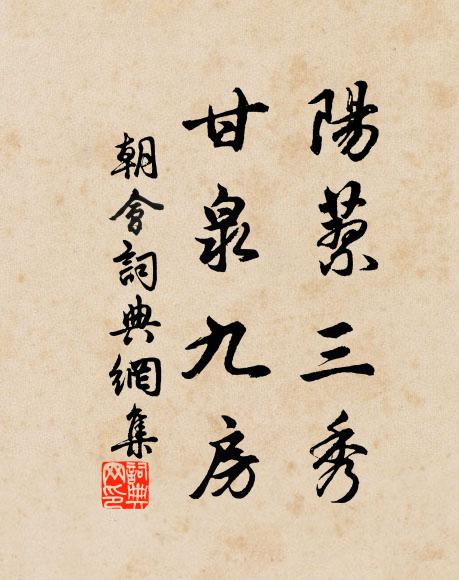 陽蘂三秀
甘泉九房
朝會詞典網集
詞典
网印